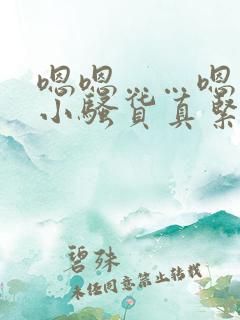 嗯嗯……嗯
小骚货真紧
碧殊
未经同意禁止转载